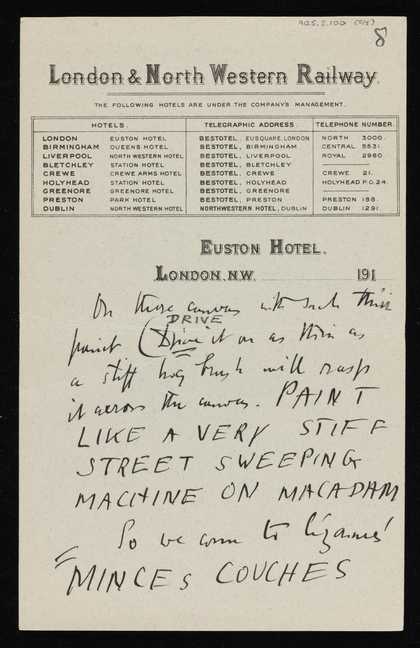 705.2.100 (7/7)
8
London & North Western Railway.
THE FOLLOWING HOTELS ARE UNDER THE COMPANY'S MANAGEMENT.
HOTELS. TELEGRAPHIC ADDRESS TELEPHONE NUMBER
LONDON EUSTON HOTEL BESTOTEL, EUSQUARE, LONDON NORTH 3000.
BIRMINGHAM QUEENS HOTEL BESTOTEL, BIRMINGHAM CENTRAL 5531.
LIVERPOOL NORTH WESTERN HOTEL BESTOTEL, LIVERPOOL ROYAL 2960
BLETCHLEY STATION HOTEL BESTOTEL, BLETCHLEY
CREWE CREWE ARMS HOTEL BESTOTEL, CREWE CREWE 21.
HOLYHEAD STATION HOTEL BESTOTEL, HOLYHEAD HOLYHEAD P.O. 24.
GREENORE GREENORE HOTEL BESTOTEL, GREENORE
PRESTON PARK HOTEL BESTOTEL, PRESTON PRESTON 198.
DUBLIN NORTH WESTERN HOTEL NORTHWESTERN HOTEL, DUBLIN DUBLIN 1291.
EUSTON HOTEL.
LONDON. N.W. 191
On these canvas with such thin
DRIVE
paint (Drive it on as thin as
a stiff hog brush will rasp
it across the canvas. PAINT
LIKE A VERY STIFF
STREET SWEEPING
MACHINE ON MACADAM
So we come to
"MINCES COUCHES